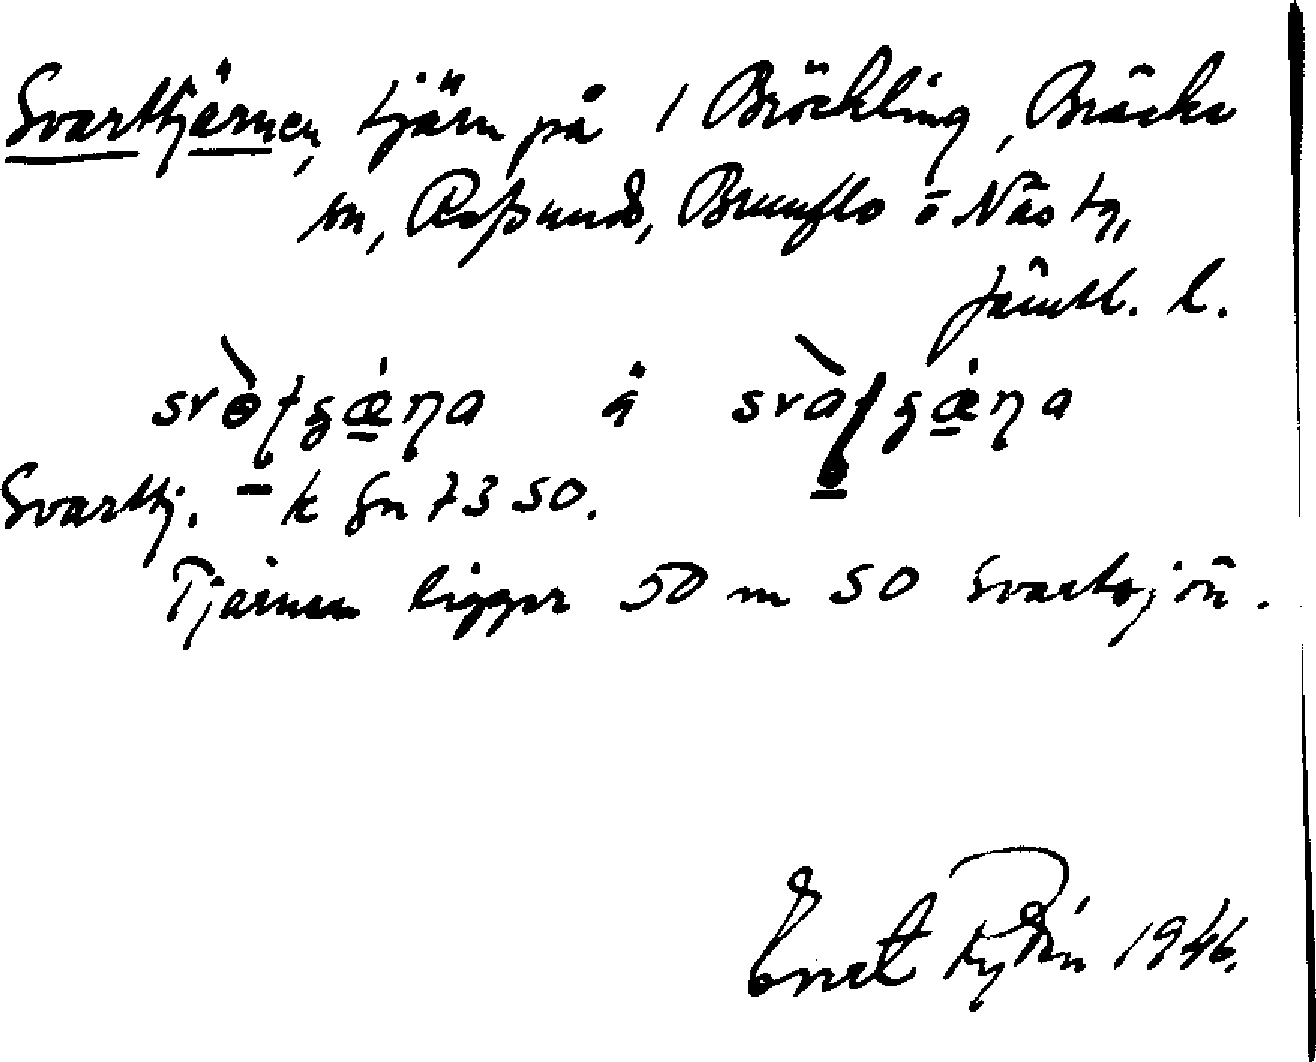 Svarttjärnen, tjärn på 1 Bröckling, Bräcke
sn, Refsunds, Brunflo o Näs tg,
Jämtl. l.
svɵ̀ʈgǽɳa å svàʈgǽɳa
Svarttj. – k gn 7350.
Tjärnen ligger 50 m SO Svartsjön.
Ernst Rydén 1946.